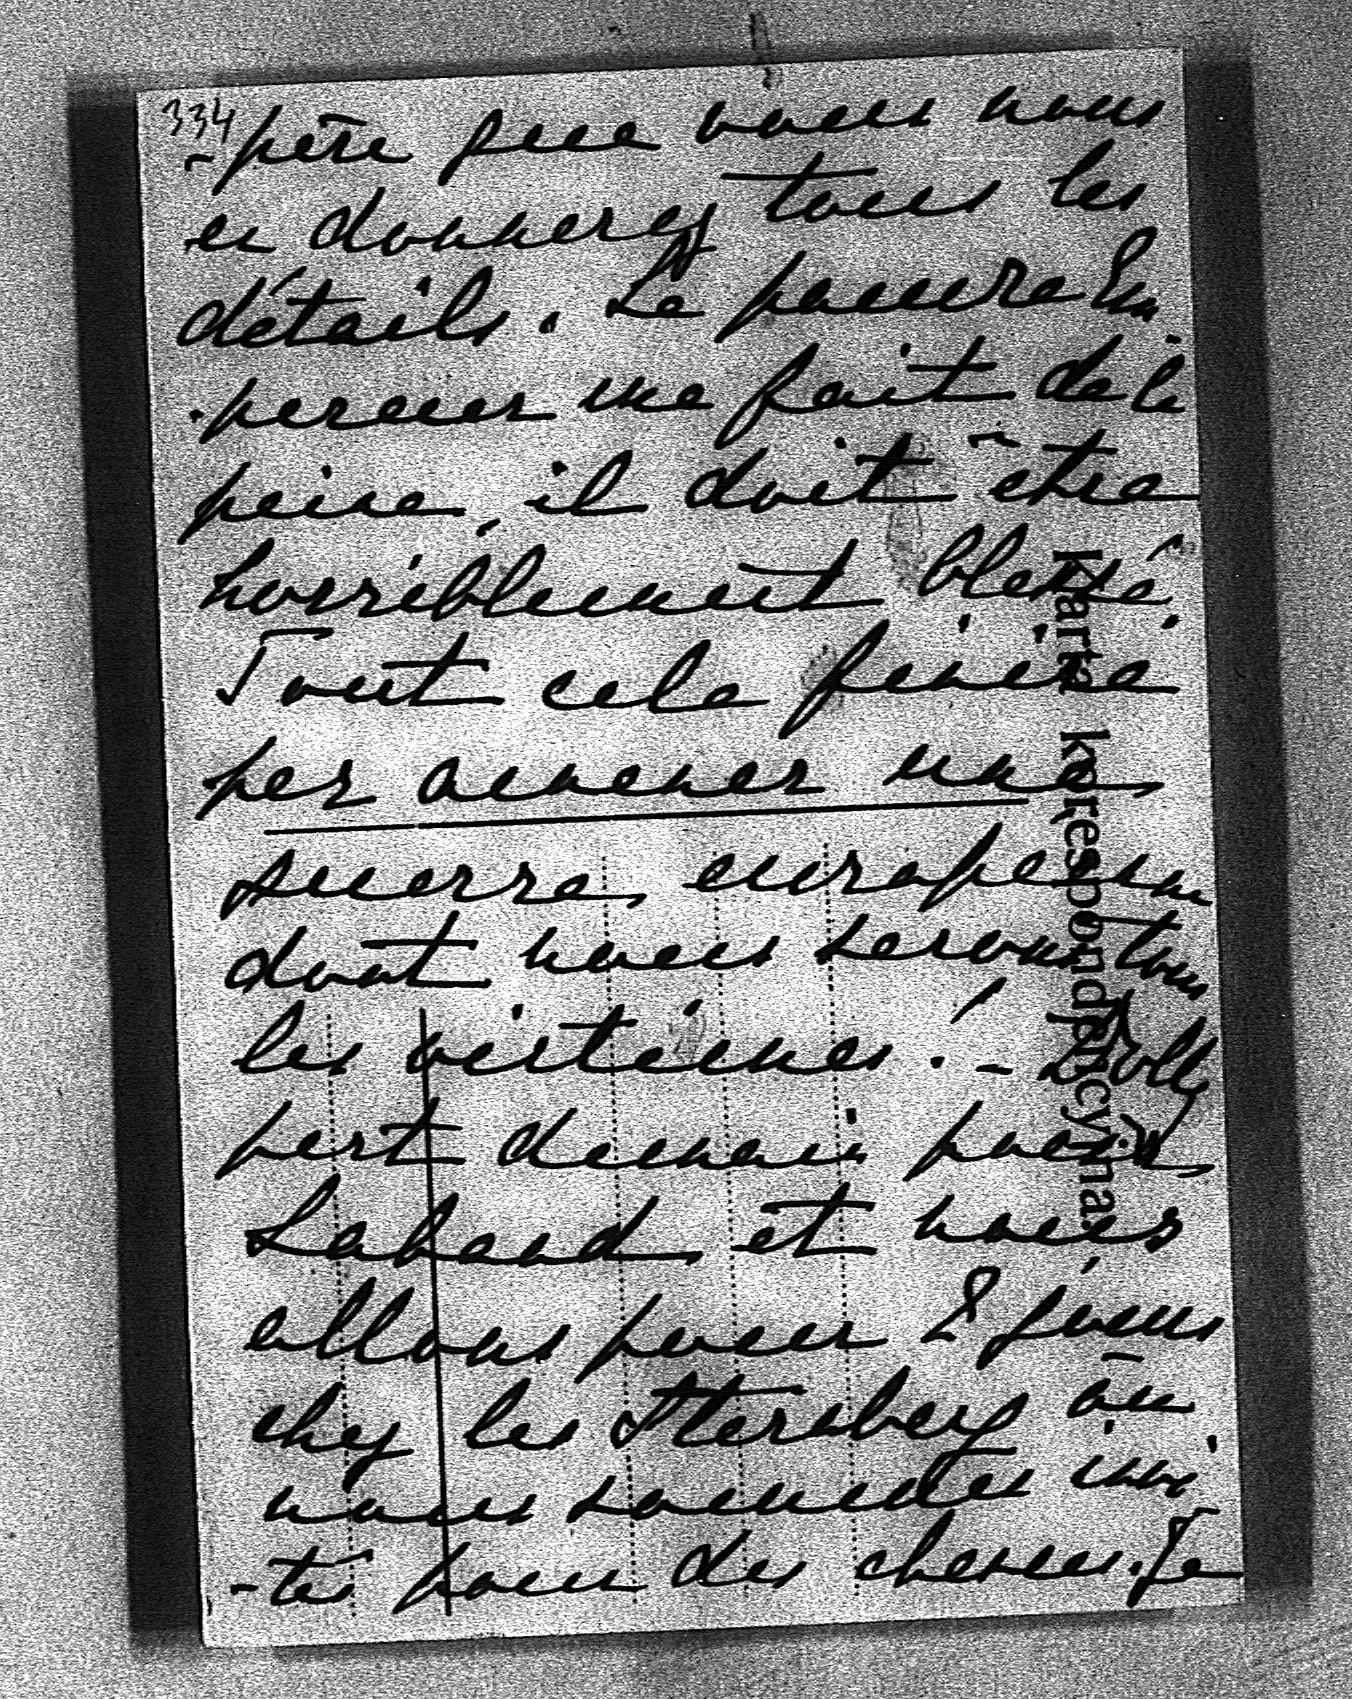 334
-père que vous nous
en donnerez tous les
détails. Le pauvre Em-
-pereur me fait de la
peine, il doit être
horriblement blessé.
Tout cela finira
par amener une
guerre européenne
dont nous serons tous
les victimes! - Dolly
part demain pour
et nous
allons pour 2 jours
chez les Sternberg où
nous sommes invi-
-tés pour des chasses. Je
Karta korespondencyjna.